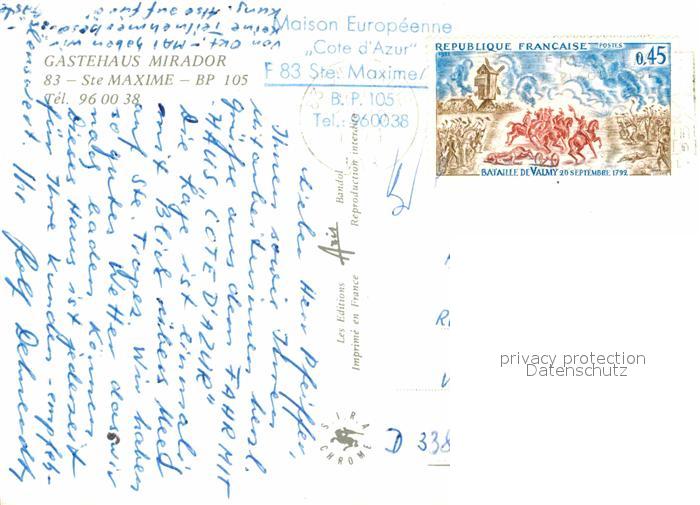 GASTEHAUS MIRADOR
83 – Ste MAXIME – BP 105
Tél. 96 00 38
Maison Européenne
„Cote d'Azur"
F 83 Ste. Maxime/
B. P. 105
Tel.: 960038
REPUBLIQUE FRANCAISE POSTES
0,45
BATAILLE DE VALMY 20 SEPTEMBRE 1792
Lieber Herr Pfeiffer,
Ihnen sowie Ihren
Mitarbeiterinnen herzl.
Grüße aus dem FAHR MIT
HAUS "COTE D'AZUR"
Die Lage ist einmalig
mit Blick übers Meer
auf St. Tropez. Wir haben
so gutes Wetter dass wir
noch baden können.
Dieses Haus ist jederzeit
für Ihre Kunden - empfeh-
lenswert. Ihr Rolf
von Okt. - Mai haben wir
keine Teilnehmer
Les Editions
Bandol
Imprimé en France
Reproduction interdite
SIRA
CHROME
D 338
privacy protection
Datenschutz